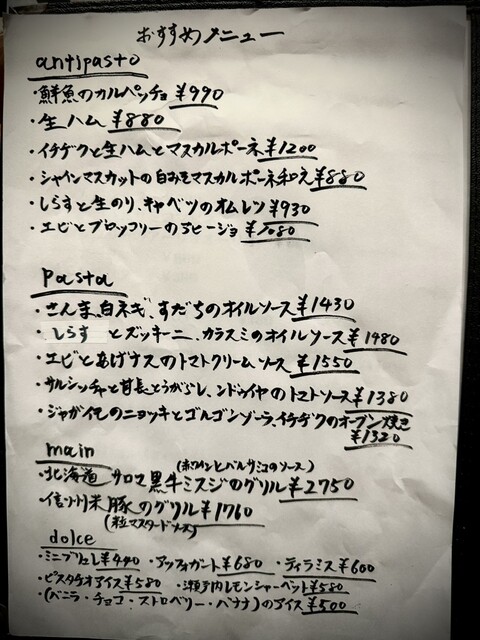 おすすめメニュー
antipasto
・鮮魚のカルパッチョ ¥990
・生ハム ¥880
・イチヂクと生ハムとマスカルポーネ ¥1200
・シャインマスカットの白みそマスカルポーネ和え ¥880
・しらすと生のり、キャベツのオムレツ ¥930
・エビとブロッコリーのアヒージョ ¥1080
Pasta
・さんま、白ネギ、すだちのオイルソース ¥1430
・しらす とズッキーニ、カラスミのオイルソース ¥1480
・エビとあげナスのトマトクリームソース ¥1550
・サルシッチャと甘長とうがらし、ンドゥイヤのトマトソース ¥1380
・ジャガイモのニョッキとゴルゴンゾーラ、イチヂクのオーブン焼き
¥1320
main
(赤ワインとバルサミコのソース)
・北海道 サロマ黒牛ミスジのグリル ¥2750
・信州米豚のグリル ¥1760
(粒マスタードソース)
dolce
・ミニブリュレ ¥440 ・アッフォガート ¥680 ・ティラミス ¥600
・ピスタチオアイス ¥580 ・瀬戸内レモンシャーベット ¥580
・(バニラ・チョコ・ストロベリー・バナナ)のアイス ¥500